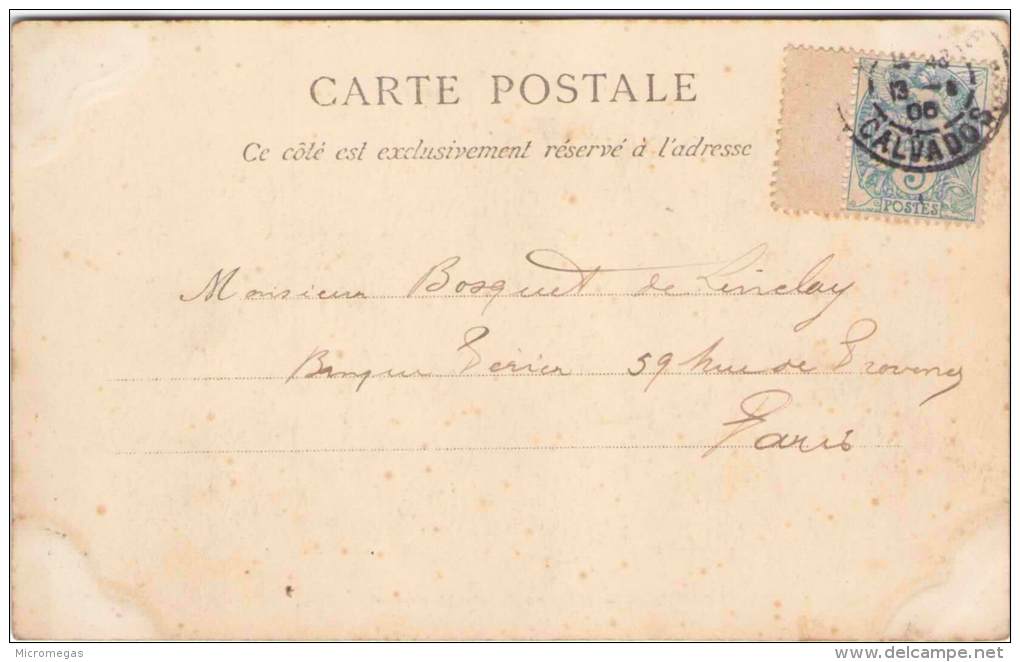 CARTE POSTALE
Ce côté est exclusivement réservé à l'adresse
13
06
CALVADOS
5
POSTES
Monsieur Bosquet de
Banque Périer 59 Rue de Provence
Paris
Micromegas
delcampe.net